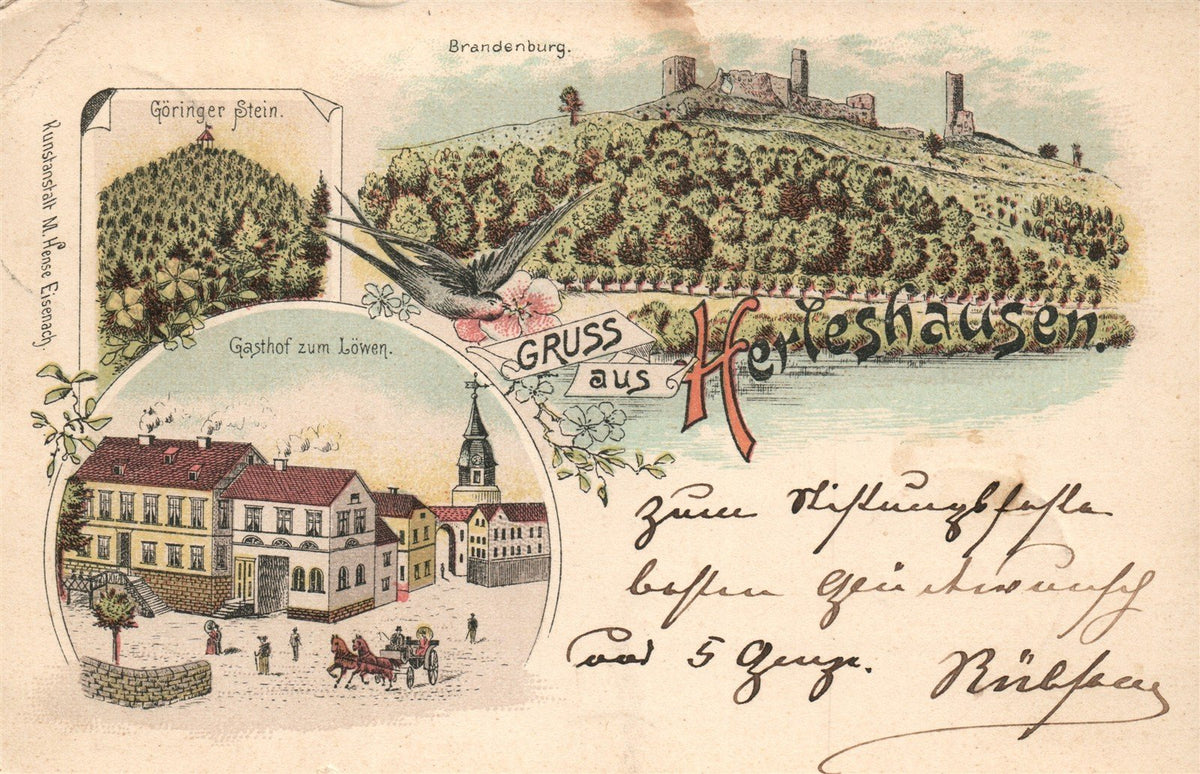 Brandenburg.
Göringer Stein.
Kunstanstalt M. Hense Eisenach
Gasthof zum Löwen.
GRUSS
aus
Herleshausen.
Zum Stiftungsfeste
besten Glückwunsch
und 5